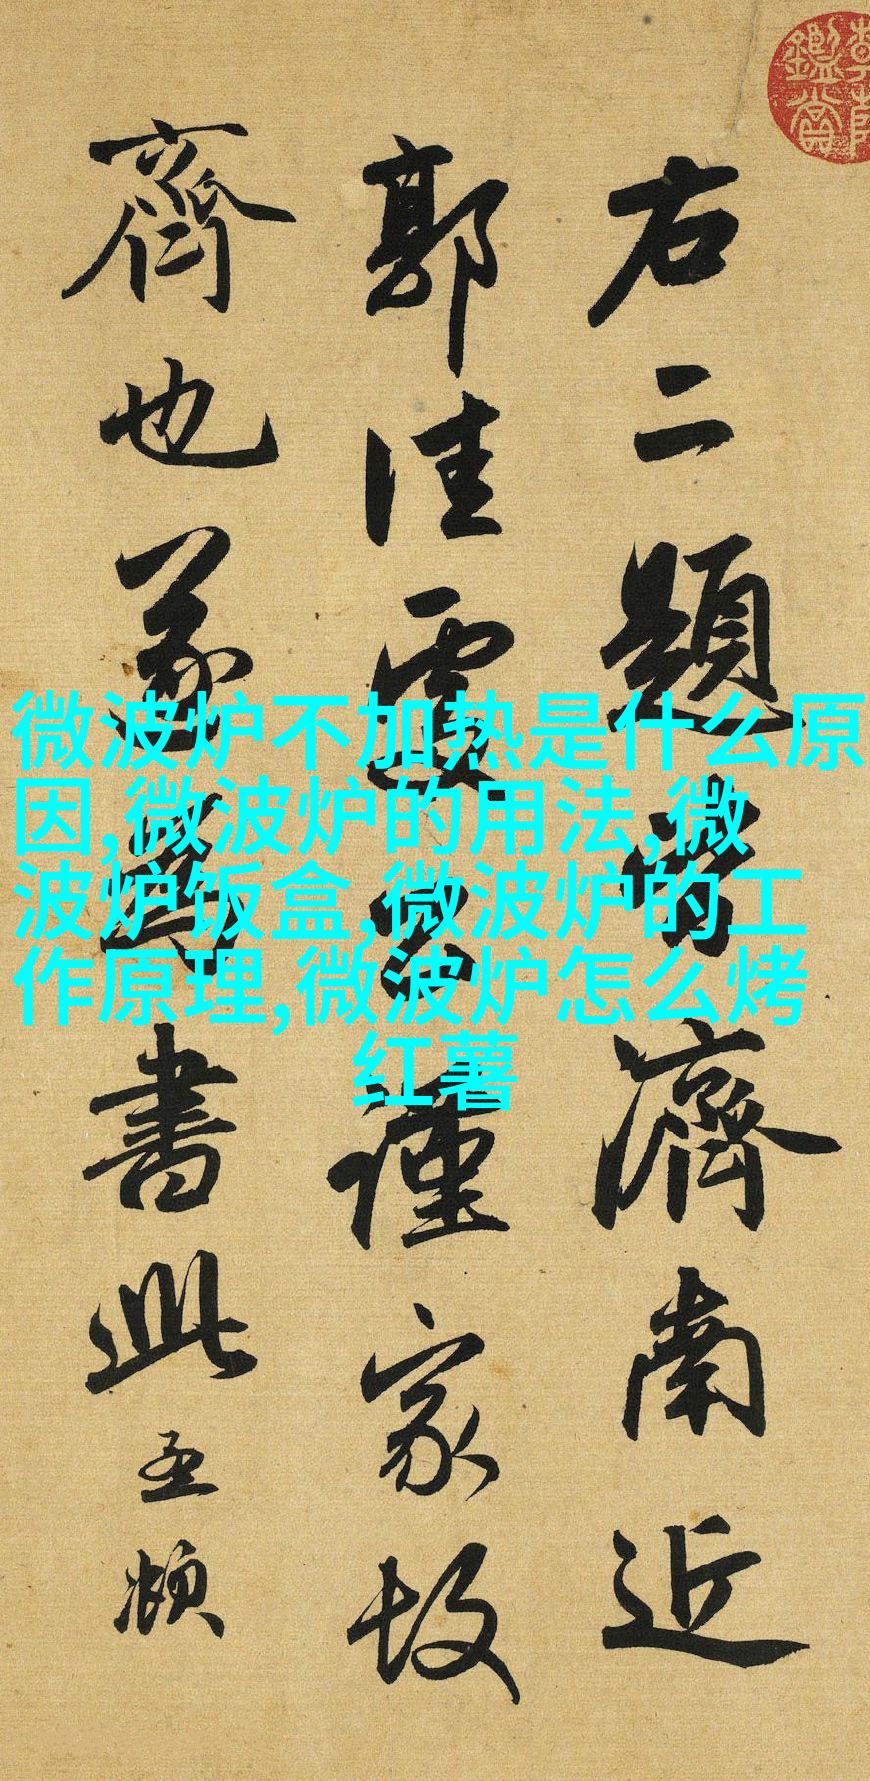 右二題皆濟南近
郭佳處公謹家故
齊也遂為書此孟頫
微波炉不加热是什么原
因,微波炉的用法,微
波炉饭盒,微波炉的工
作原理,微波炉怎么烤
红薯